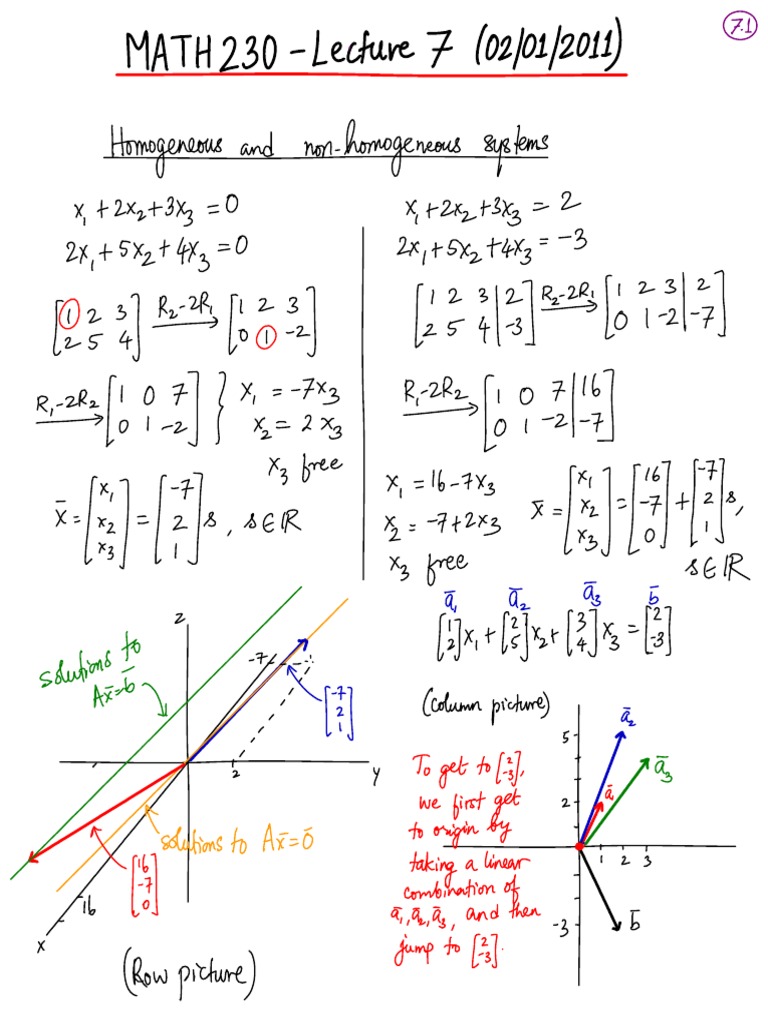 7.1
MATH 230 – Lecture 7 (02/01/2011)
Homogeneous and non-homogeneous systems
x₁ + 2x₂ + 3x₃ = 0
2x₁ + 5x₂ + 4x₃ = 0
[1 2 3; 2 5 4] R₂-2R₁ → [1 2 3; 0 1 -2]
R₁-2R₂ → [1 0 7; 0 1 -2] } x₁ = -7x₃
x₂ = 2x₃
x₃ free
x̄ = [x₁; x₂; x₃] = [-7; 2; 1] s, s∈ℝ
x₁ + 2x₂ + 3x₃ = 2
2x₁ + 5x₂ + 4x₃ = -3
[1 2 3 | 2; 2 5 4 | -3] R₂-2R₁ → [1 2 3 | 2; 0 1 -2 | -7]
R₁-2R₂ → [1 0 7 | 16; 0 1 -2 | -7]
x₁ = 16-7x₃
x₂ = -7+2x₃
x₃ free
x̄ = [x₁; x₂; x₃] = [16; -7; 0] + [-7; 2; 1] s,
s∈ℝ
ā₁ ā₂ ā₃ b̄
[1; 2] x₁ + [2; 5] x₂ + [3; 4] x₃ = [2; -3]
z
solutions to
Ax̄=b̄
-7
[-7; 2; 1]
2
y
solutions to Ax̄=0̄
[16; -7; 0]
16
x
(Row picture)
(column picture)
To get to [2; -3],
we first get
to origin by
taking a linear
combination of
ā₁, ā₂, ā₃, and then
jump to [2; -3].
5
ā₂
ā₃
2
ā₁
1 2 3
-3
b̄